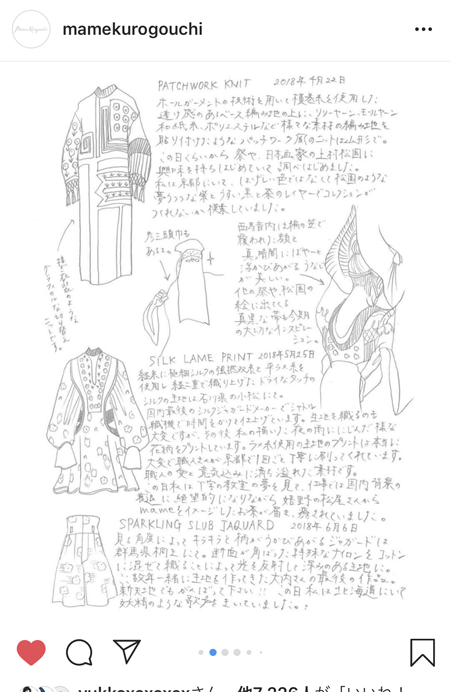 mamekurogouchi
PATCHWORK KNIT 2018年4月22日
ホールガーメントの技術を用いて横巻糸を使用した
透け感のあるベース編み地の上に、リリーヤーン、モールヤーン
和紙糸、ポリエステルなど様々な素材の編み地を
貼り付けたようなパッチワーク風のニット
この日くらいから祭や、日本画家の上村松園に
興味を持ちはじめていて、調べはじめました。
私は京都にいて、はげしい色ではなくて松園のような
夢うつつな紫とうすい黒と祭のレイヤーでコレクションが
つくれないか模索していました。
真っ暗闇にぼやーと
浮かびあがるような
が美しい。
他の祭や、松園の
絵に出てくる
真黒な帯も今期
の大切なインスピレー
ション。
SILK LAME PRINT 2018年5月25日
使用し 織り上げたドライなタッチの
シルクの生地は石川県の小松にて。
国内最後のシルクジャガードメーカーでシャトル
織機で時間をかけて仕上げています。生地を織るのも
大変ですが、その後 私の描いた花の雨ににじんだ様な
花柄をプリントしています。ラメ糸使用の生地のプリントは本当に
大変で職人さんが京都で1日ごと丁寧に刷ってくれています。
職人の愛と意気込みに満ち溢れた素材です。
この日私は 夢を見て、仕事では国内背景の
衰退に絶望的になりながら 嬉野の松尾さんから
mameをイメージしたお茶が届き、癒されていました。
SPARKLING SLUB JAQUARD 2018年6月6日
見る角度によってキラキラと柄がうかびあがるジャガードは
群馬県桐生にて。断面が角ばった特殊なナイロンをコットン
に混ぜて織ることによって光を反射して深みのある生地に。
ここ数年一緒に生地を作ってきた大内さんの最後の作品。
新天地でもがんばって下さい!! この日私は北海道にいて
妖精のような歌声をきいていました。
yukkoxoxoxoxさん、他7,226人が「いいね!